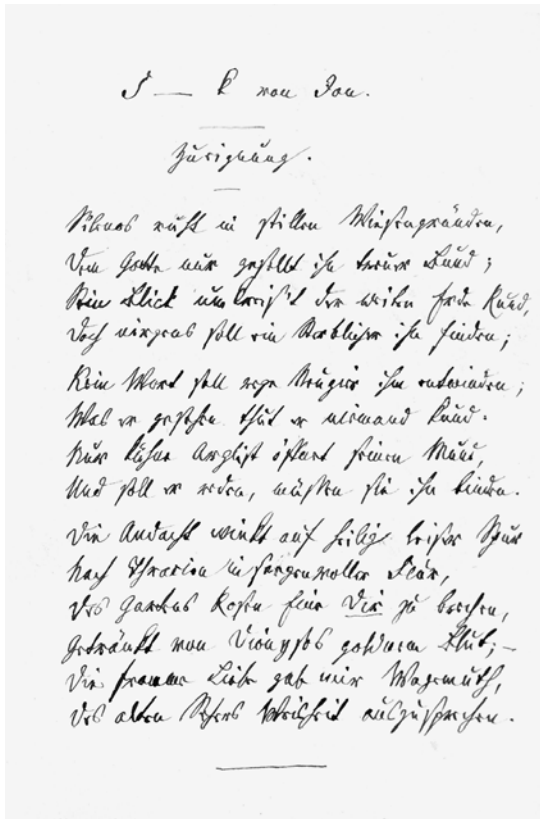 von Jon.
Zueignung.
Silenos ruht in stillen Wiesengründen,
Dem Gotte nur gesellt ihn treuer Bund;
Sein Blick umkreis't der weiten Erde Rund,
Doch nirgens soll ein Sterblicher ihn finden;
Kein Wort soll rege Neugier ihm entwinden;
Was er gesehen thut er niemand kund.
Nur kühne Arglist öffnet seinen Mund,
Und soll er reden, müssen sie ihn binden.
Die Andacht winkt auf heilig leiser Spur
Nach Thracien in segenvoller Flur,
Des Gartens Rosen Dir zu brechen,
Getränkt von Dionysos goldnem Blut; —
Die fromme Liebe gab mir Wagemuth,
Des alten Sehers Weisheit auszusprechen.